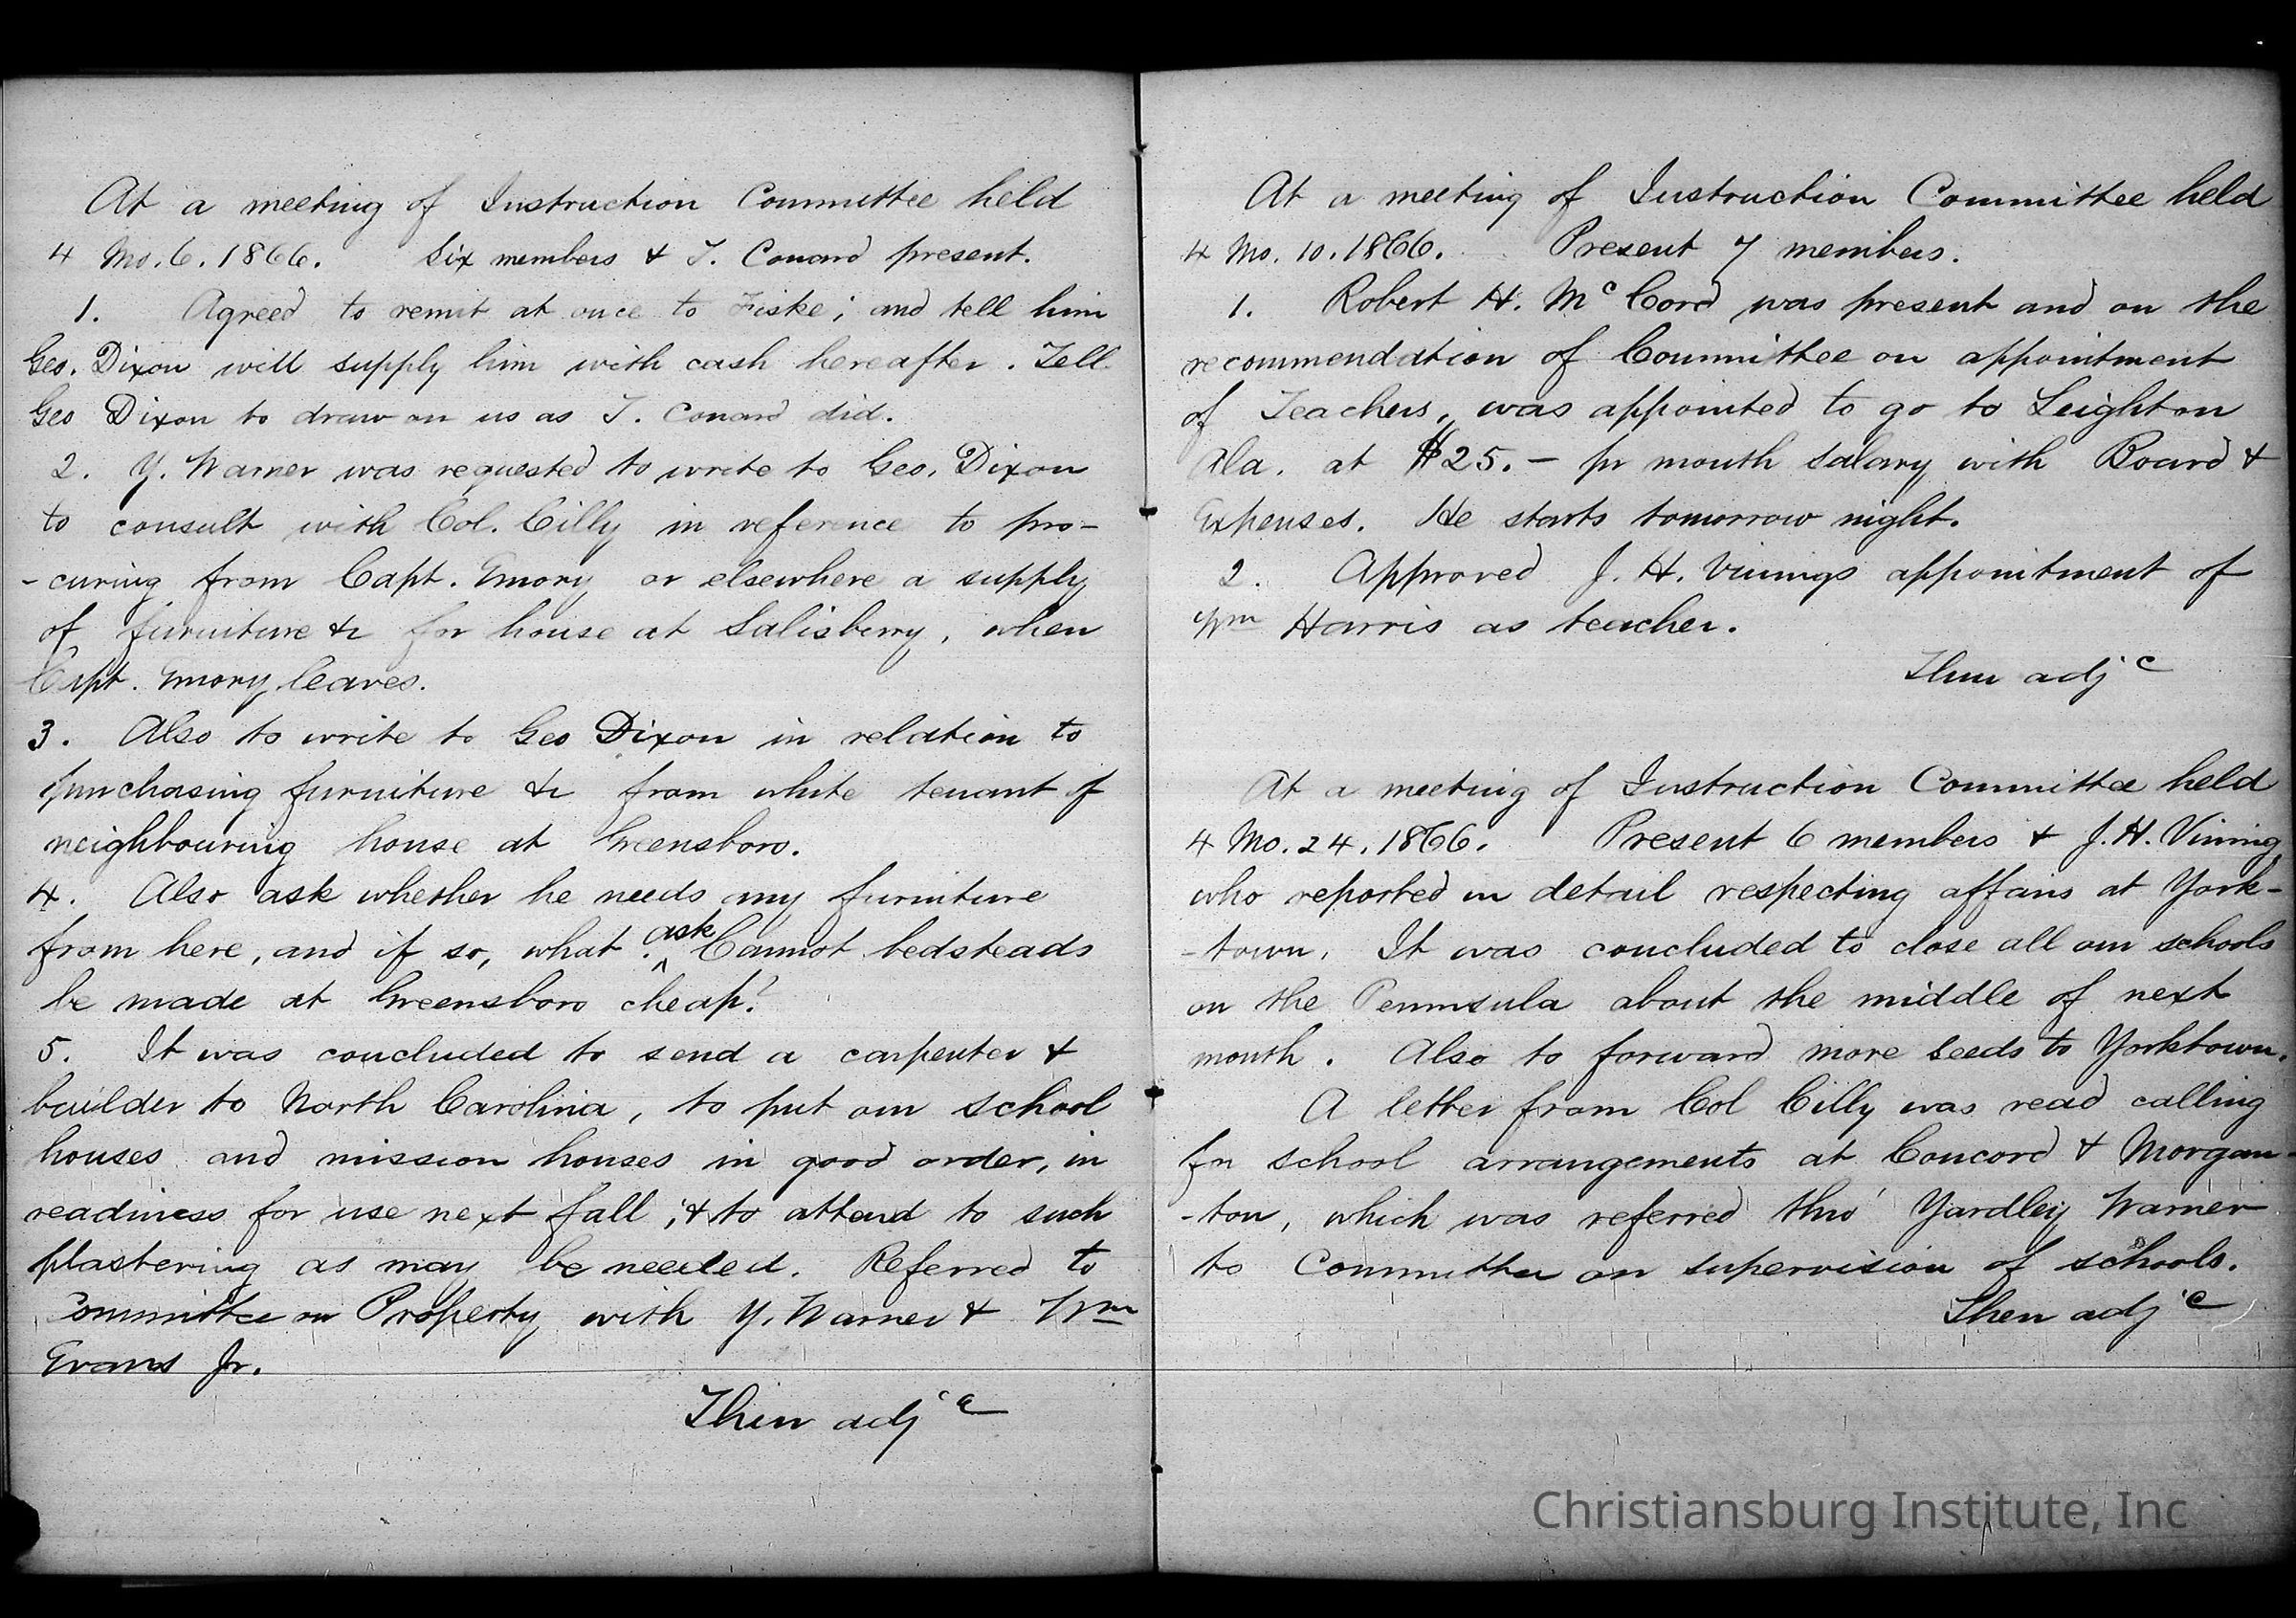 At a meeting of Instruction Committee held
4 Mo. 6. 1866. Six members & T. Conard present.
1. Agreed to remit at once to Fiske; and tell him
Geo. Dixon will supply him with cash hereafter. Tell
Geo Dixon to draw on us as T. Conard did.
2. Y. Warner was requested to write to Geo. Dixon
to consult with Col. Cilly in reference to pro-
-curing from Capt. Emory or elsewhere a supply
of furniture &c for house at Salisberry, when
Capt. Emory leaves.
3. Also to write to Geo Dixon in relation to
purchasing furniture &c from white tenant of
neighbouring house at Greensboro.
4. Also ask whether he needs any furniture
from here, and if so, what. ask Cannot bedsteads
be made at Greensboro cheap?
5. It was concluded to send a carpenter &
builder to North Carolina, to put our school
houses and mission houses in good order, in
readiness for use next fall; & to attend to such
plastering as may be needed. Referred to
Committee on Property with Y. Warner & Wm
Evans Jr.
Then adjd
At a meeting of Instruction Committee held
4 Mo. 10. 1866. Present 7 members.
1. Robert H. McCord was present and on the
recommendation of Committee on appointment
of Teachers, was appointed to go to Leighton
Ala. at $25.- pr month salary with Board &
Expenses. He starts tomorrow night.
2. Approved J. H. Vinings appointment of
Wm Harris as teacher.
Then adjd
At a meeting of Instruction Committee held
4 Mo. 24. 1866. Present 6 members & J. H. Vining
who reported in detail respecting affairs at York-
-town. It was concluded to close all our schools
on the Peninsula about the middle of next
month. Also to forward more seeds to Yorktown.
A letter from Col Cilly was read calling
for school arrangements at Concord & Morgan-
-ton, which was referred thro' Yardley Warner
to Committee on supervision of schools.
Then adjd
Christiansburg Institute, Inc